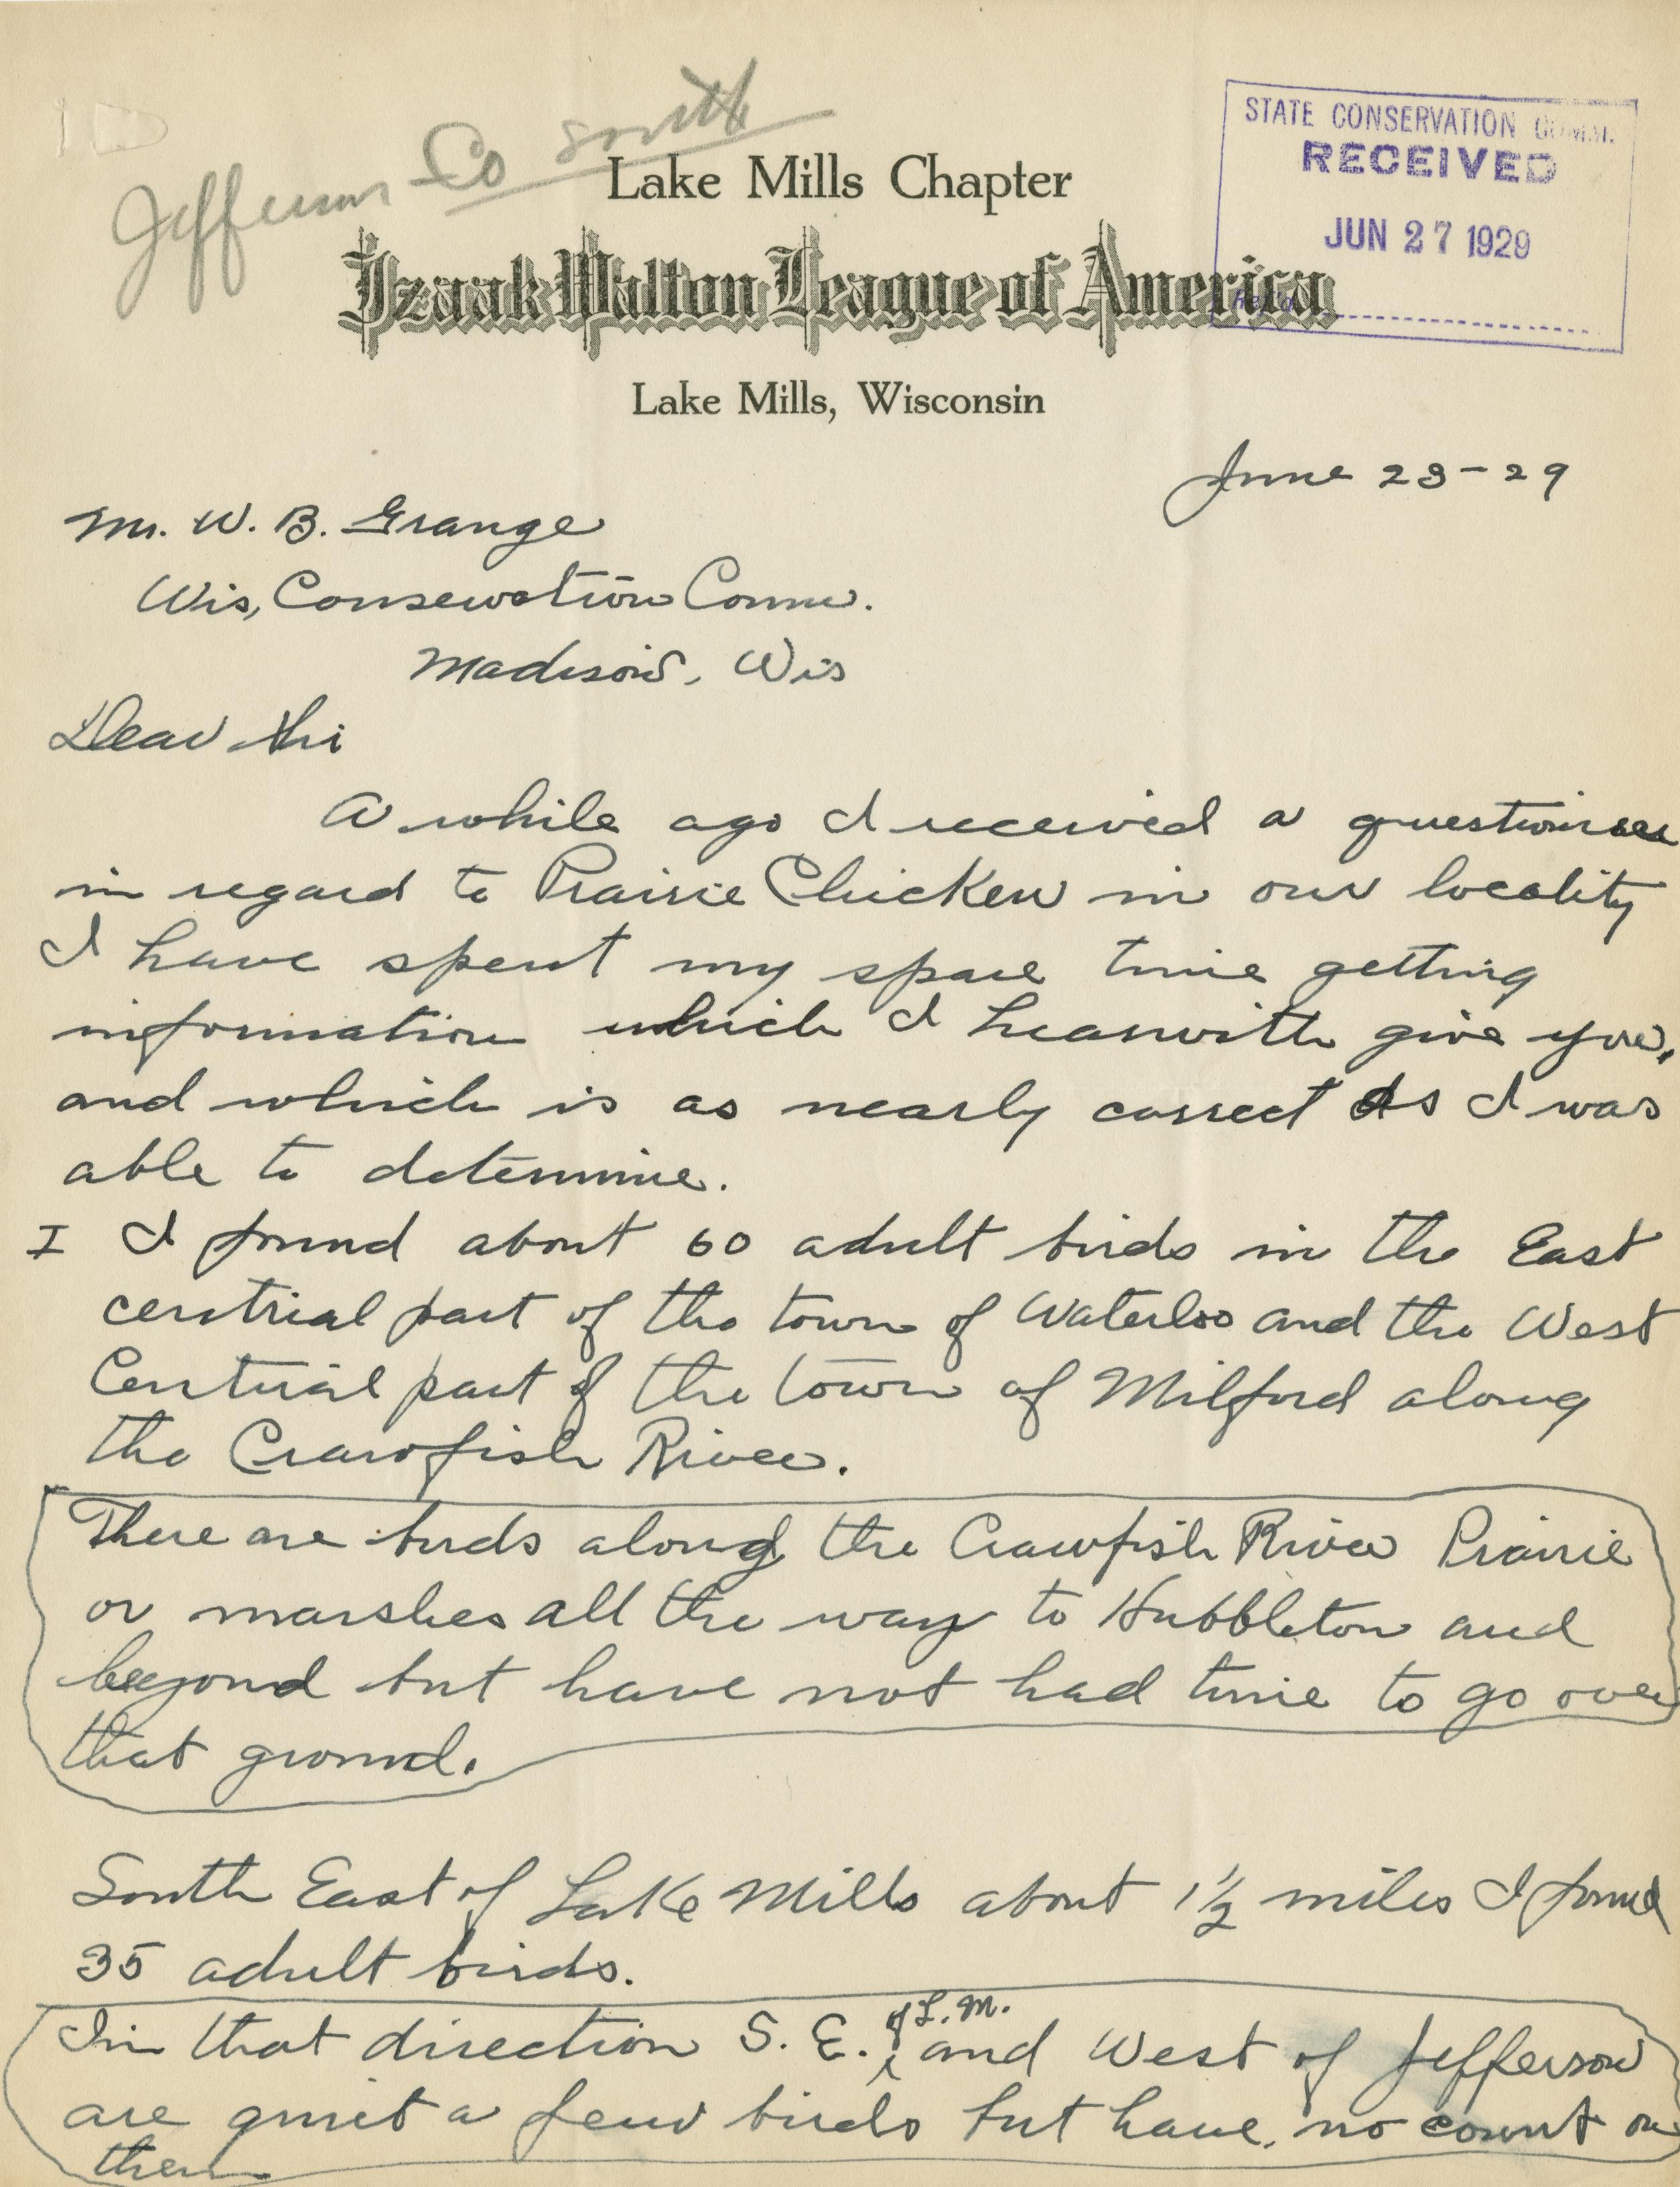 Jefferson Co South
Lake Mills Chapter
Izaak Walton League of America
Lake Mills, Wisconsin
STATE CONSERVATION COMM.
RECEIVED
JUN 27 1929
June 23-29
Mr. W. B. Grange
Wis, Conservation Comm.
Madison, Wis
Dear Sir
A while ago I received a
in regard to Prairie Chicken in our locality
I have spent my spare time getting
information which I hearwith give you,
and which is as nearly correct As I was
able to determine.
I I found about 60 adult birds in the East
centrial part of the town of Waterloo and the West
Centrial part of the town of Milford along
the Crawfish River.
There are birds along the Crawfish River Prairie
or marshes all the way to Hubbleton and
beyond but have not had time to go over
that ground.
South East of Lake Mills about 1½ miles I found
35 adult birds.
In that direction S. E. of L. M. and West of Jefferson
are quiet a few birds but have no count on
them